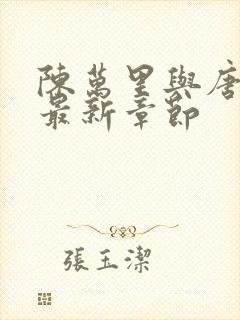 陳萬里與唐
最新章節
張玉潔